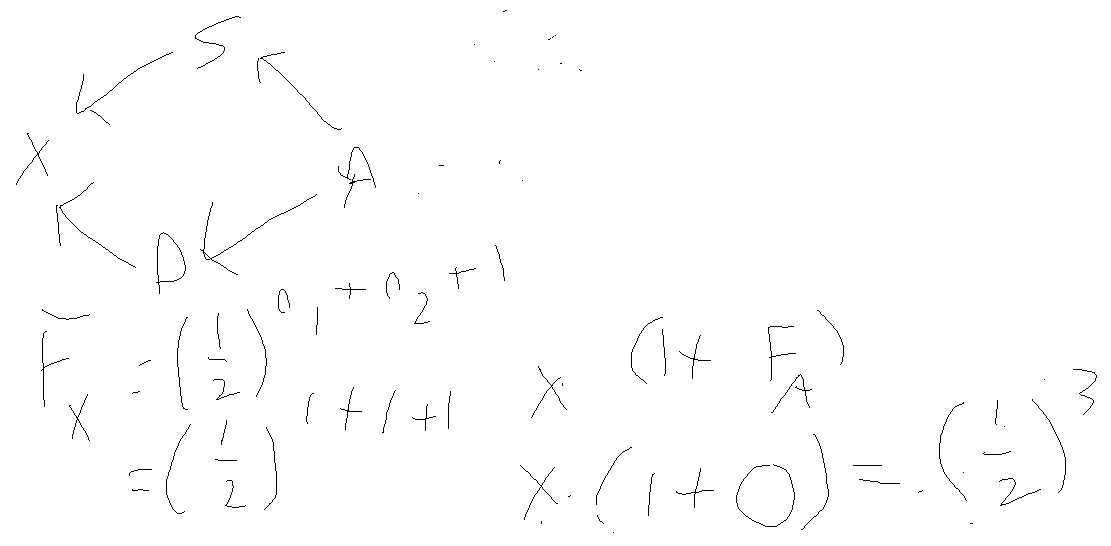 S
X
A
D
F_X = (1/2)^{n_1 + n_2 + 1} × (1 + F_A)
= (1/2)^{1+1+1} × (1 + 0) = (1/2)^3